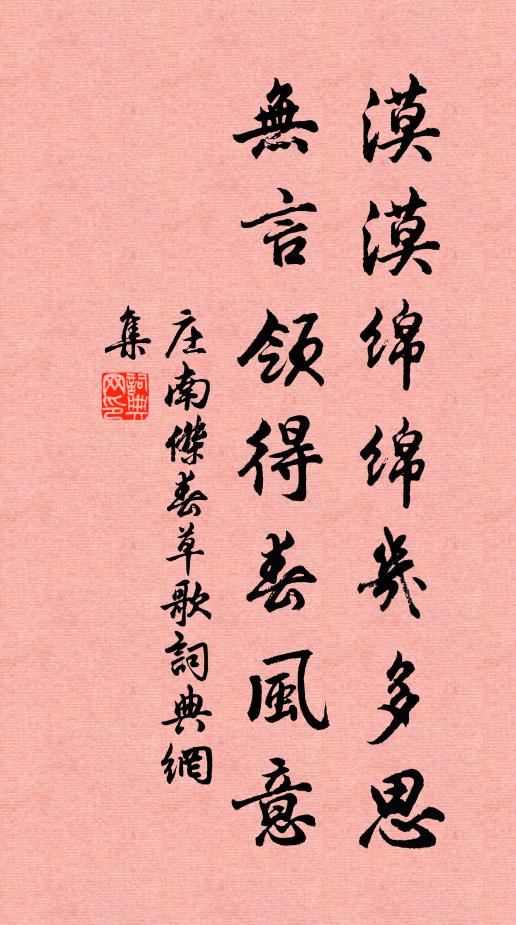 漠漠绵绵幾多思
無言領得春風意
庄南傑春草歌詞典網
集
詞典网印